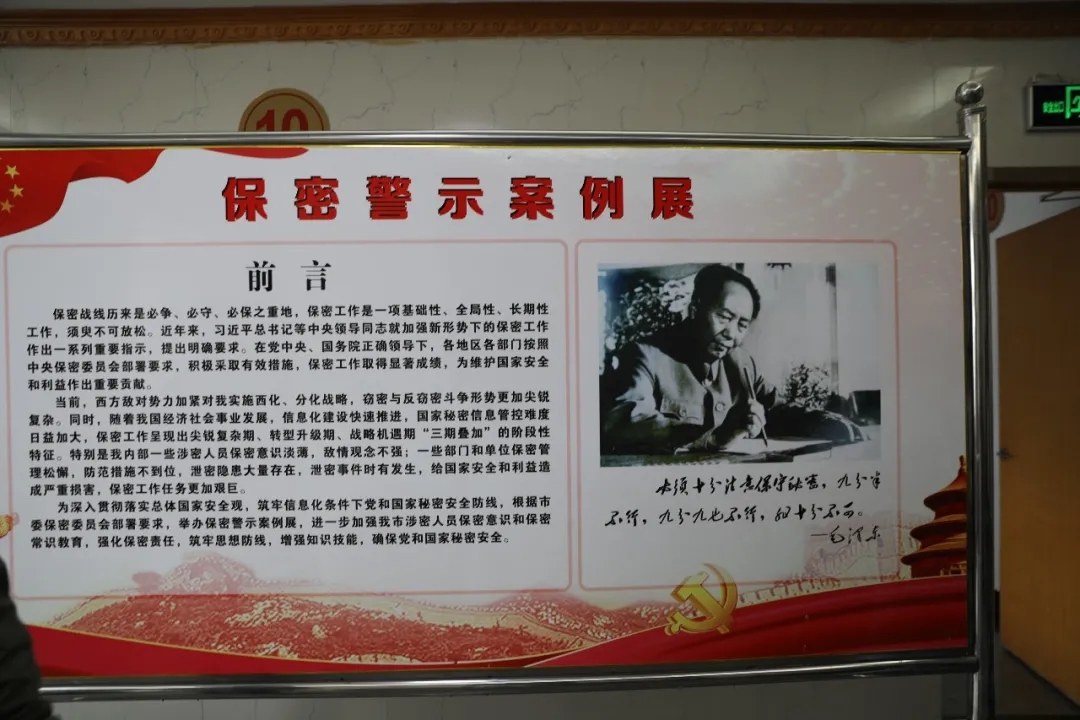 10
安全出口
保密警示案例展
前言
保密战线历来是必争、必守、必保之重地，保密工作是一项基础性、全局性、长期性
工作，须臾不可放松。近年来，习近平总书记等中央领导同志就加强新形势下的保密工作
作出一系列重要指示，提出明确要求。在党中央、国务院正确领导下，各地区各部门按照
中央保密委员会部署要求，积极采取有效措施，保密工作取得显著成绩，为维护国家安全
和利益作出重要贡献。
当前，西方敌对势力加紧对我实施西化、分化战略，窃密与反窃密斗争形势更加尖锐
复杂。同时，随着我国经济社会事业发展，信息化建设快速推进，国家秘密信息管控难度
日益加大，保密工作呈现出尖锐复杂期、转型升级期、战略机遇期“三期叠加”的阶段性
特征。特别是我内部一些涉密人员保密意识淡薄，敌情观念不强；一些部门和单位保密管
理松懈，防范措施不到位，泄密隐患大量存在，泄密事件时有发生，给国家安全和利益造
成严重损害，保密工作任务更加艰巨。
为深入贯彻落实总体国家安全观，筑牢信息化条件下党和国家秘密安全防线，根据市
委保密委员会部署要求，举办保密警示案例展，进一步加强我市涉密人员保密意识和保密
常识教育，强化保密责任，筑牢思想防线，增强知识技能，确保党和国家秘密安全。
必须十分注意保守秘密，九分半
不行，九分九也不行，非十分不可。
—毛泽东